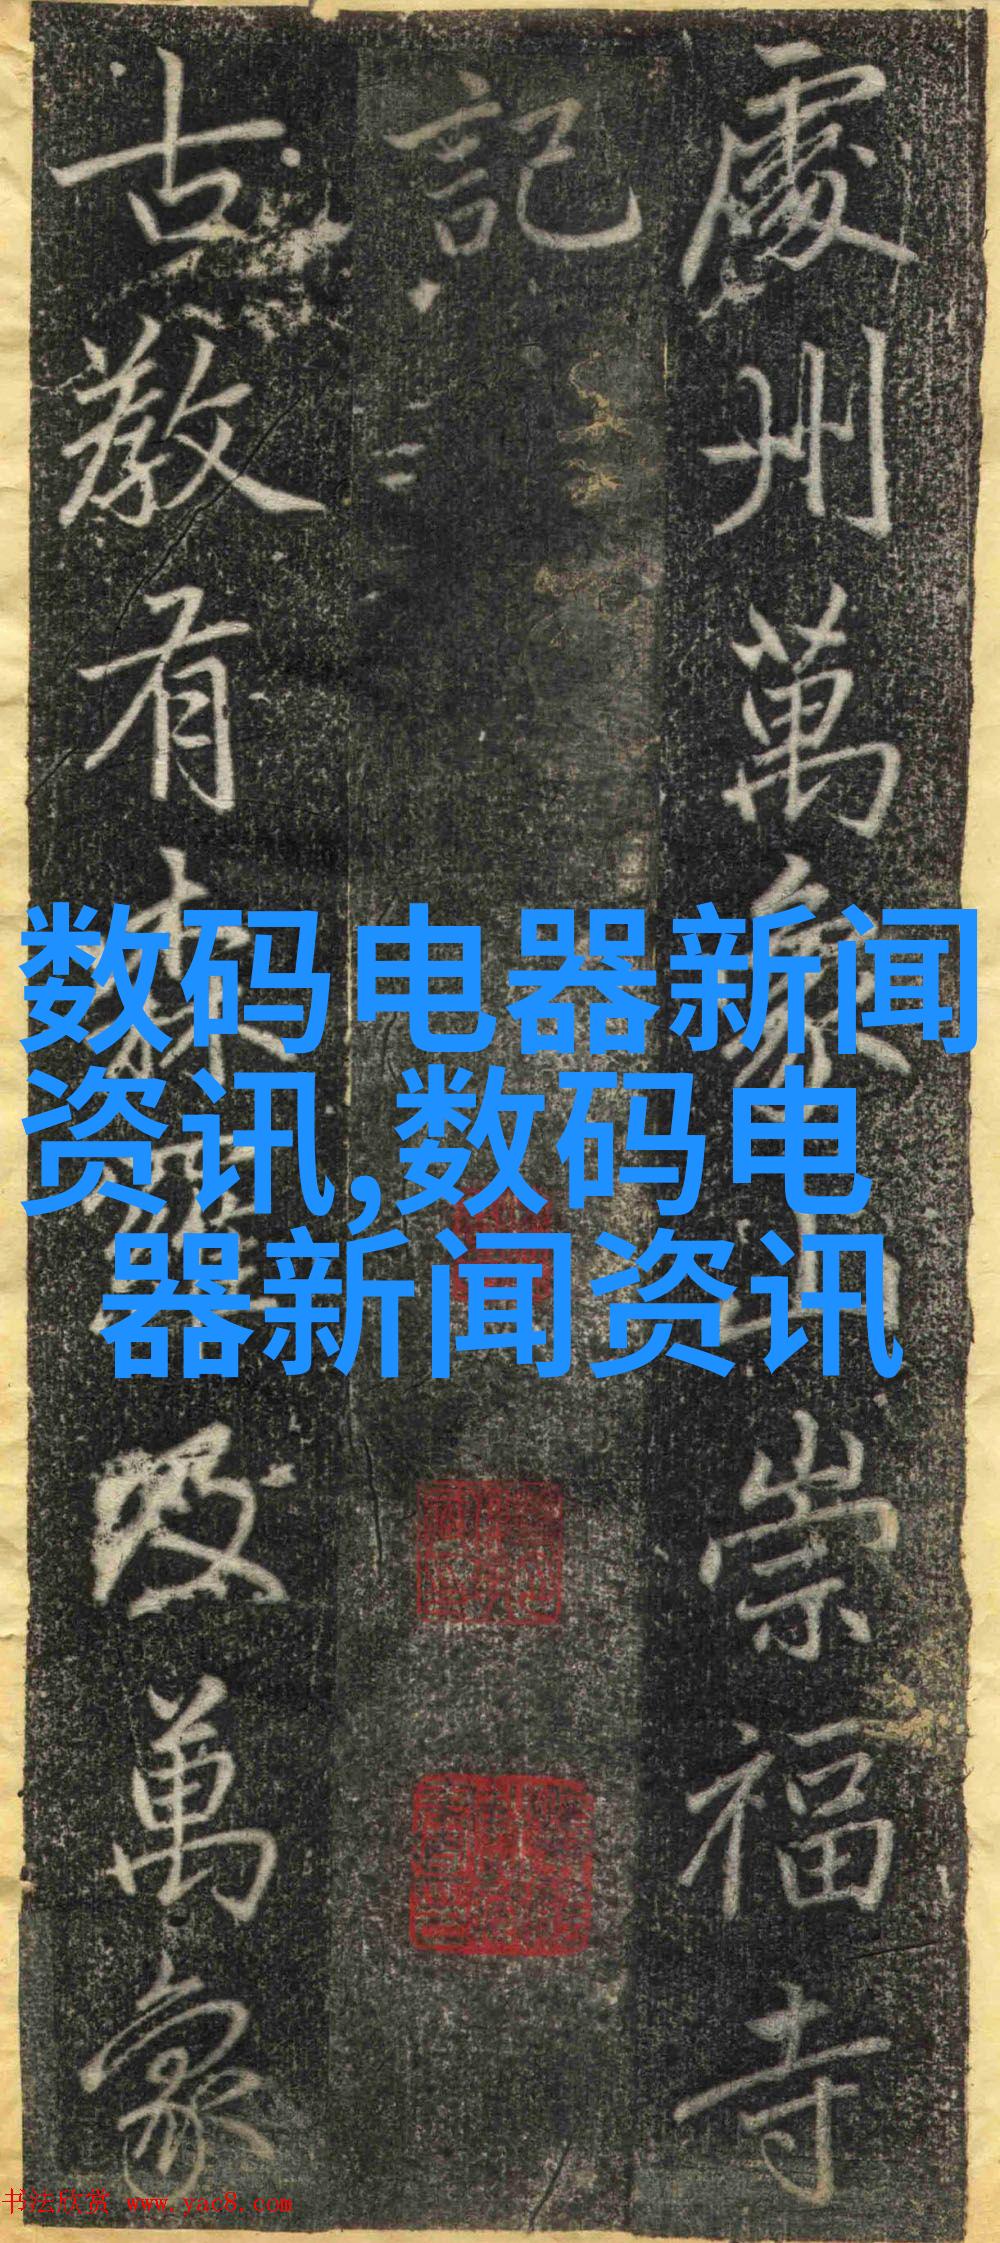 處州萬象山崇福寺
記
古教有森羅及萬象
数码电器新闻
资讯,数码电
器新闻资讯
书法欣赏 www.yac8.com